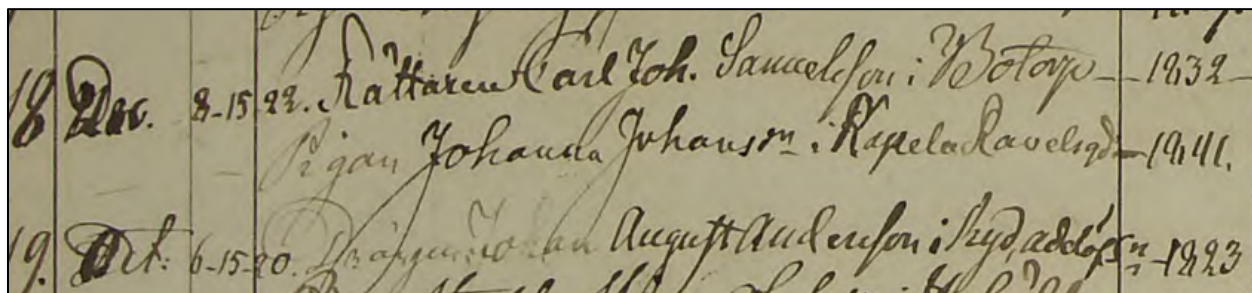 18 Dec. 8-15 22. Rättaren Carl Joh. Samuelsson i Botorp — 1832 —
Pigan Johanna Johansn i Kapela Ravelsgd — 1841.
19. Oct. 6-15-20. Drängen Johan August Andersson i Ryd, — 1823